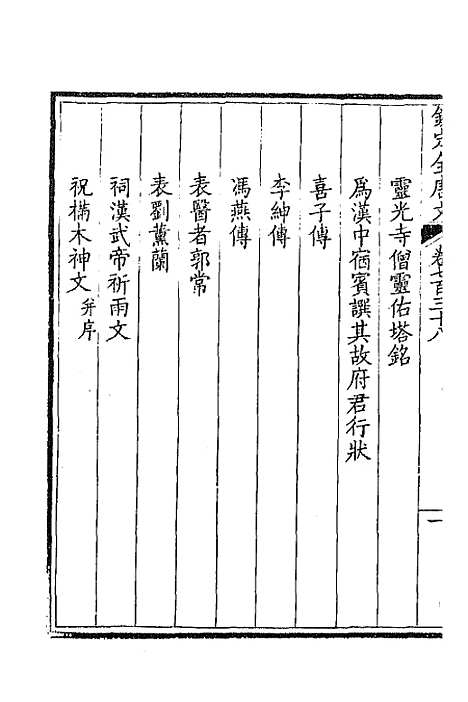 欽定全唐文 卷七百三十八 一
靈光寺僧靈佑塔銘
為漢中宿賓譔其故府君行狀
喜子傳
李紳傳
馮燕傳
表醫者郭常
表劉薰蘭
祠漢武帝祈雨文
祝㮕木神文并序